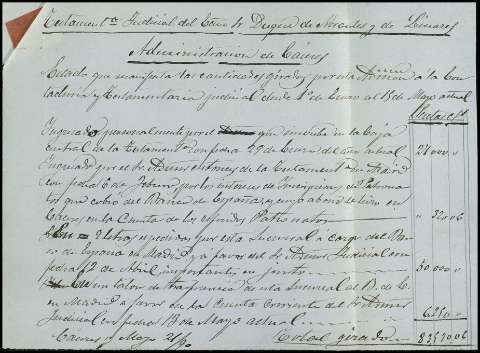 Testament.ª Judicial del Exmo Sr Duque de Arcos y de Linares
Administracion de Caceres
Estado que manifiesta las cantidades giradas por esta Admon á la Con
taduria y Testamentaria judicial desde 1º de Enero al 15 de Mayo actual
Ingresado personalmente por el que suscribe en la Caja
central de la Testament con fecha 29 de Enero del año actual 21000 "
Ingresado por el Sr Admor de la Testament en Madrid
con fecha 6 de Febrero, por los intereses de Inscripciones de Patrona
tos que cobró del Banco de España, y cuyo abono se hizo en
Caceres en la Cuenta de los referidos Patronatos " 320,06
En 2 letras expedidas por esta Sucursal á cargo del Ban
co de España en Madrid á favor del Sr Admor Judicial con
fecha 12 de Abril importantes en junto 30000 "
un talon de trasferencia de esta Sucursal al B. de E.
en Madrid a favor de la Cuenta corriente del Sr Admor
Judicial con fecha 13 de Mayo actual 6250 "
Caceres y Mayo Total girado